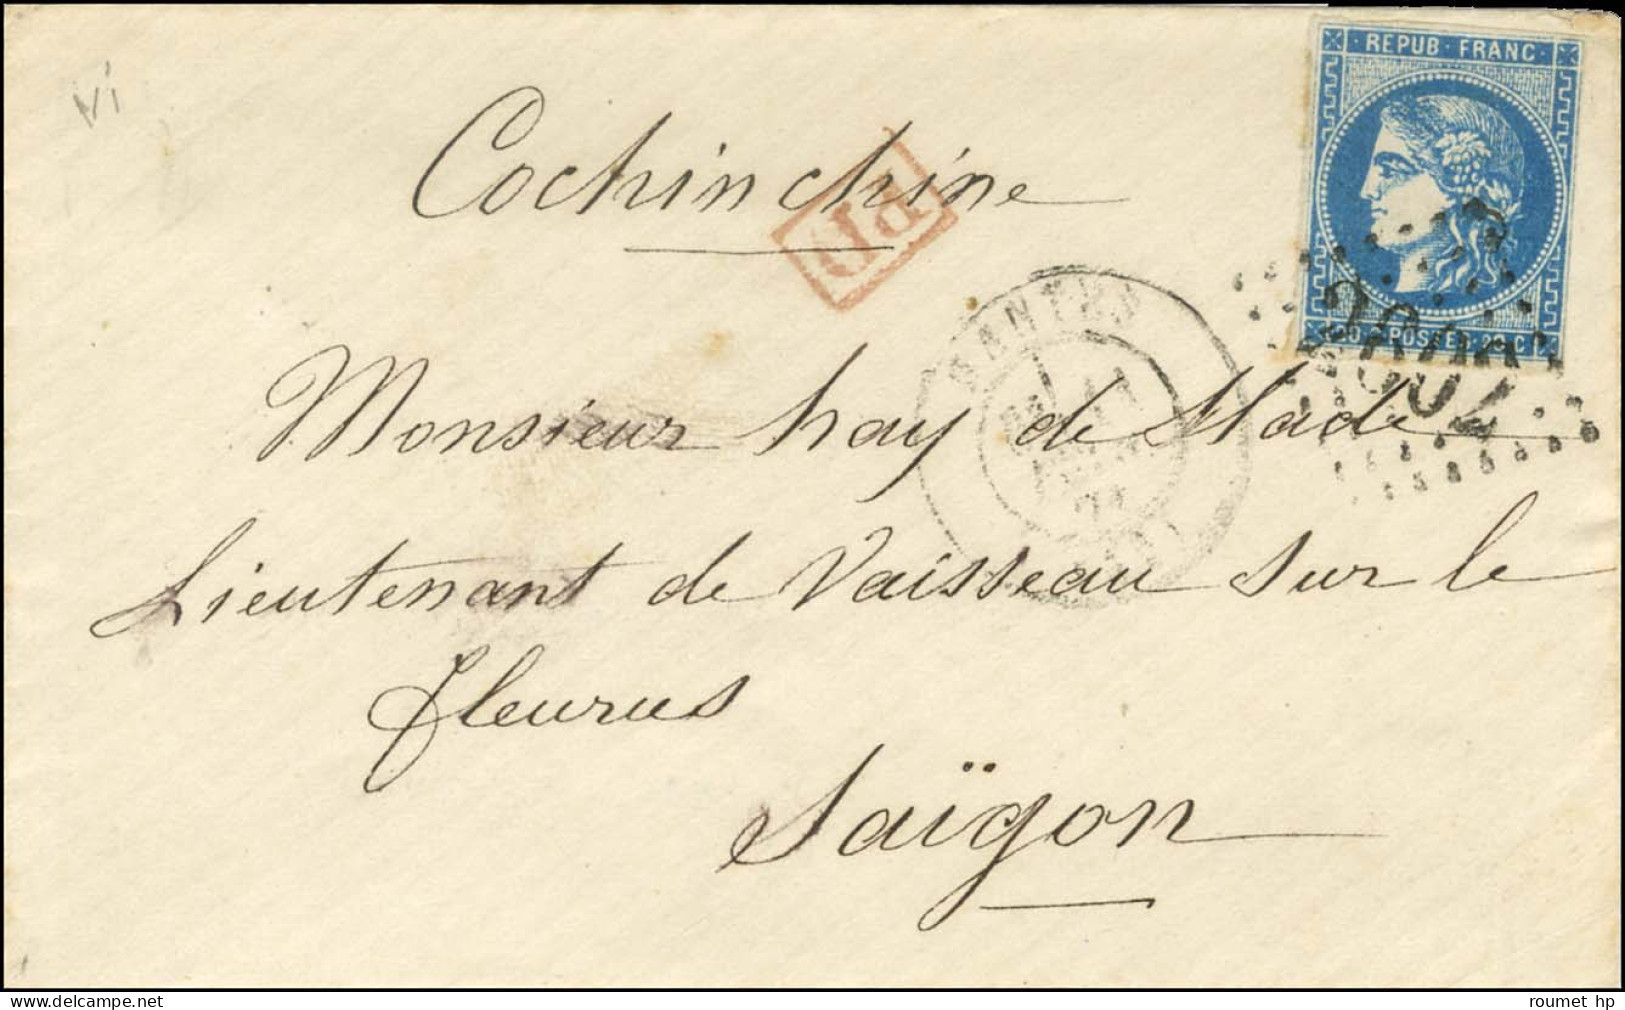 REPUB · FRANC
Cochinchine
PD
NANTES
2602
20 c POSTES 20 c
Monsieur hay de Slade
Lieutenant de Vaisseau sur le
fleurus
Saïgon
www.delcampe.net
roumet hp